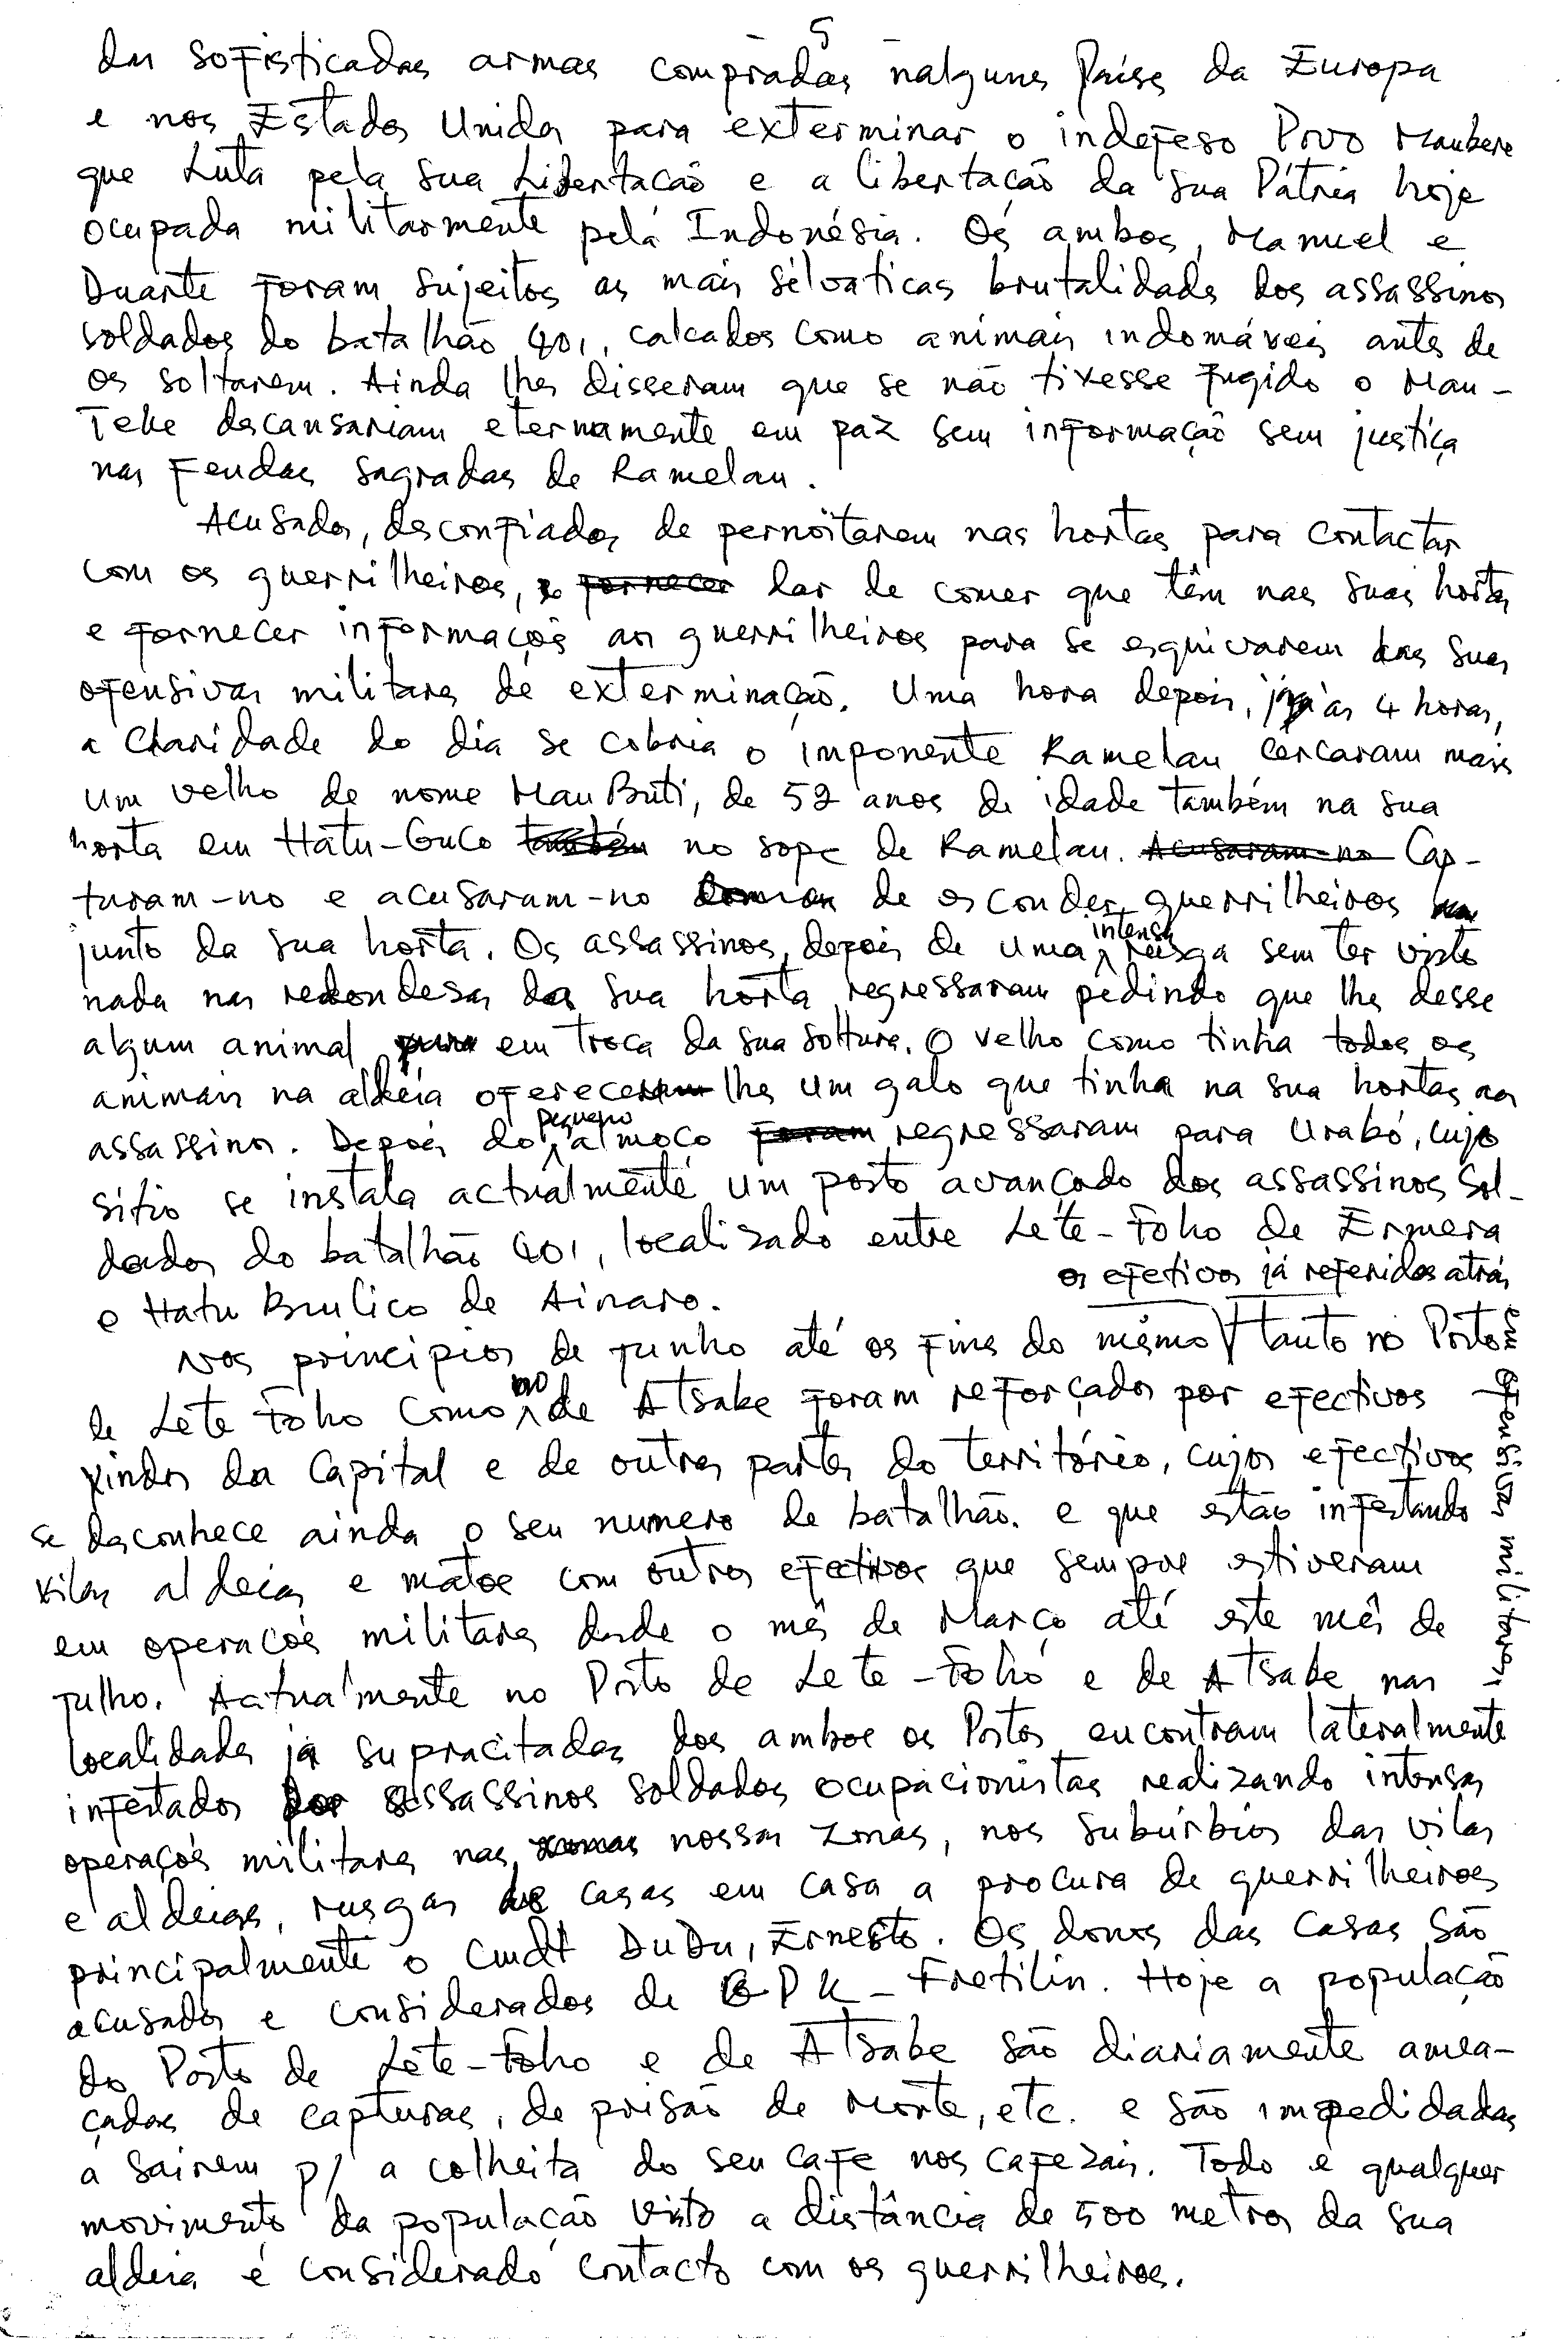 5
das sofisticadas armas compradas nalguns Países da Europa
e nos Estados Unidos para exterminar o indefeso Povo Maubere
que Luta pela sua Libertação e a libertação da sua Pátria hoje
ocupada militarmente pela Indonésia. Os ambos, Manuel e
Duarte foram sujeitos as mais sélvaticas brutalidades dos assassinos
soldados do batalhão 401, calcados como animais indomáveis antes de
os soltarem. Ainda lhes disseram que se não tivesse fugido o Mau-
Teke descansariam eternamente em paz sem informação sem justiça
nas Fendas sagradas de Ramelau.
Acusados, desconfiados de pernoitarem nas hortas para contactar
com os guerrilheiros, e fornecer dar de comer que têm nas suas hortas
e fornecer informações aos guerrilheiros para se esquivarem das suas
ofensivas militares de exterminação. Uma hora depois, já às 4 horas,
a claridade do dia se cobria o imponente Ramelau cercaram mais
um velho de nome Mau Buti, de 52 anos de idade também na sua
horta em Hatu-Guco também no sope de Ramelau. Acusaram-no Cap-
turam-no e acusaram-no de esconder guerrilheiros
junto da sua horta. Os assassinos, depois de uma intensa rusga sem ter visto
nada nas redondesas da sua horta regressaram pedindo que lhes desse
algum animal para em troca da sua soltura. O velho como tinha todos os
animais na aldeia ofereceu lhe um galo que tinha na sua hortas aos
assassinos. Depois do pequeno almoço foram regressaram para Urabó, cujo
sitio se instala actualmente um posto avançado dos assassinos sol-
dados do batalhão 401, localizado entre Lete-Foho de Ermera
e Hatu Builico de Ainaro.
os efetivos já referidos atrás
Nos principios de Junho até os fins do mesmo tanto no Posto em ofensivas militares,
de Lete Foho como no de Atsabe foram reforçados por efectivos
vindos da Capital e de outras partes do território, cujos efectivos
se desconhece ainda o seu numero de batalhão. e que estão infestando
vilas aldeias e matos com outros efectivos que sempre estiveram
em operações militares desde o mês de Março até este mês de
Julho. Actualmente no Posto de Lete-Foho e de Atsabe nas
localidades já supracitadas dos ambos os Postos encontram lateralmente
infestados por assassinos soldados ocupacionistas realizando intensas
operações militares nas zonas nossas zonas, nos subúrbios das vilas
e aldeias, rusgas de casas em casa a procura de guerrilheiros
principalmente o Cmdt DuDu, Ernesto. Os donos das casas são
acusados e considerados de GPK-Fretilin. Hoje a população
do Posto de Lete-Foho e de Atsabe são diariamente amea-
çadas de capturas, de prisão de morte, etc. e são impedidadas
a sairem p/ a colheita do seu cafe nos cafezais. Todo e qualquer
movimento da população visto a distância de 500 metros da sua
aldeia é considerado contacto com os guerrilheiros.